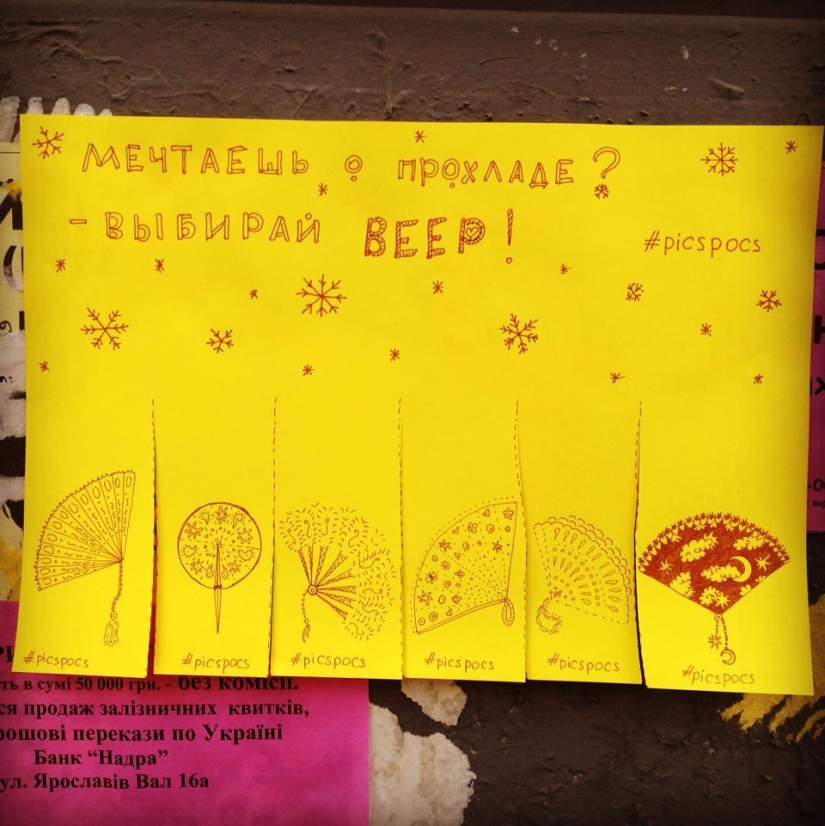 МЕЧТАЕШЬ О ПРОХЛАДЕ?
- ВЫБИРАЙ ВЕЕР!
#picspocs
#picspocs #picspocs #picspocs #picspocs #picspocs #picspocs
ть в сумі 50 000 грн. - без комісії.
ся продаж залізничних квитків,
рошові перекази по Україні
Банк “Надра”
ул. Ярославів Вал 16а